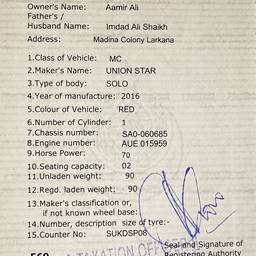 Owner's Name: Aamir Ali
Father's /
Husband Name: Imdad Ali Shaikh
Address: Madina Colony Larkana
1.Class of Vehicle: MC
2.Maker's Name: UNION STAR
3.Type of body: SOLO
4.Year of manufacture: 2016
5.Colour of Vehicle: RED
6.Number of Cylinder: 1
7.Chassis number: SA0-060685
8.Engine number: AUE 015959
9.Horse Power: 70
10.Seating capacity: 02
11.Unladen weight: 90
12.Regd. laden weight: 90
13.Maker's classification or,
if not known wheel base:
14.Number, description size of tyre:-
15.Counter No: SUKDSP08
TAXATION OFF
Seal and Signature of
Registering Authority